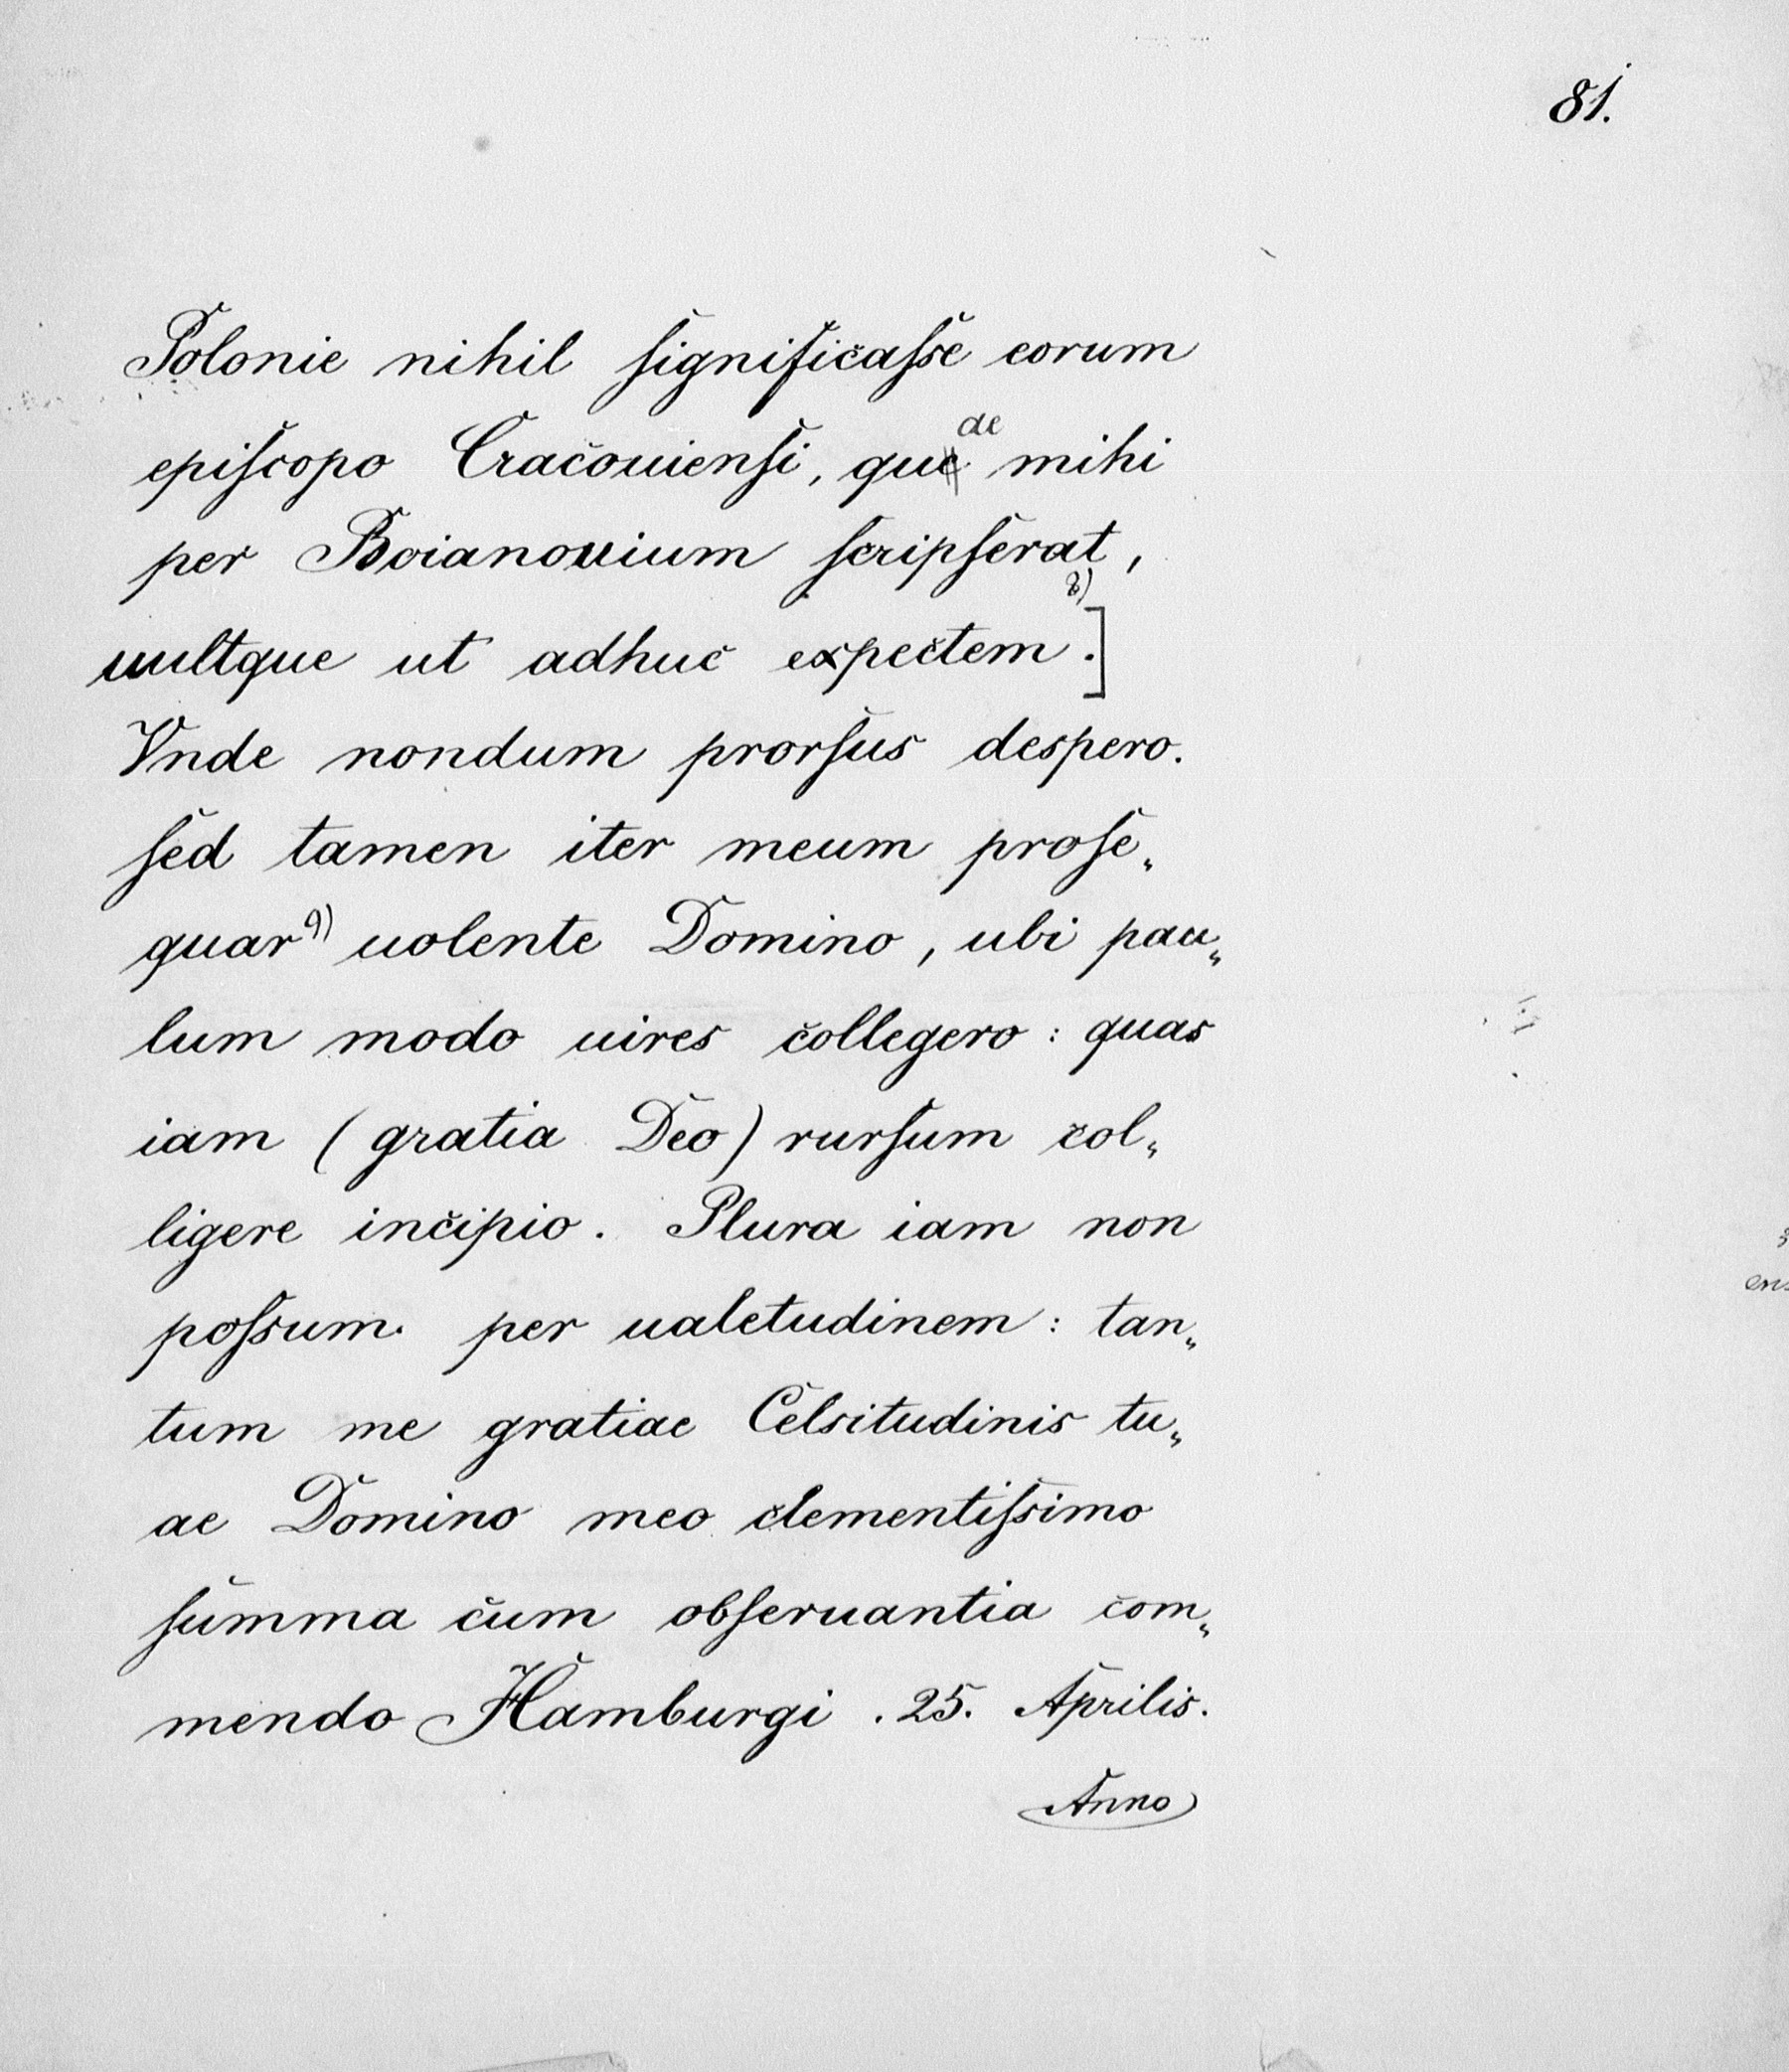 81.
Polonie nihil ſignificaſse eorum
epiſcopo Cracouienſi, quae mihi
per Boianouium ſcripſerat,
uultque ut adhuc expectem.⁸⁾]
Vnde nondum prorſus despero.
ſed tamen iter meum proſe„
quar⁹⁾ uolente Domino, ubi pau„
lum modo uires collegero: quas
iam (gratia Deo) rurſum col„
ligere incipio. Plura iam non
poſsum per ualetudinem: tan„
tum me gratiae Celsitudinis tu„
ae Domino meo clementiſsimo
ſumma cum obſeruantia com„
mendo Hamburgi . 25. Aprilis.
Anno